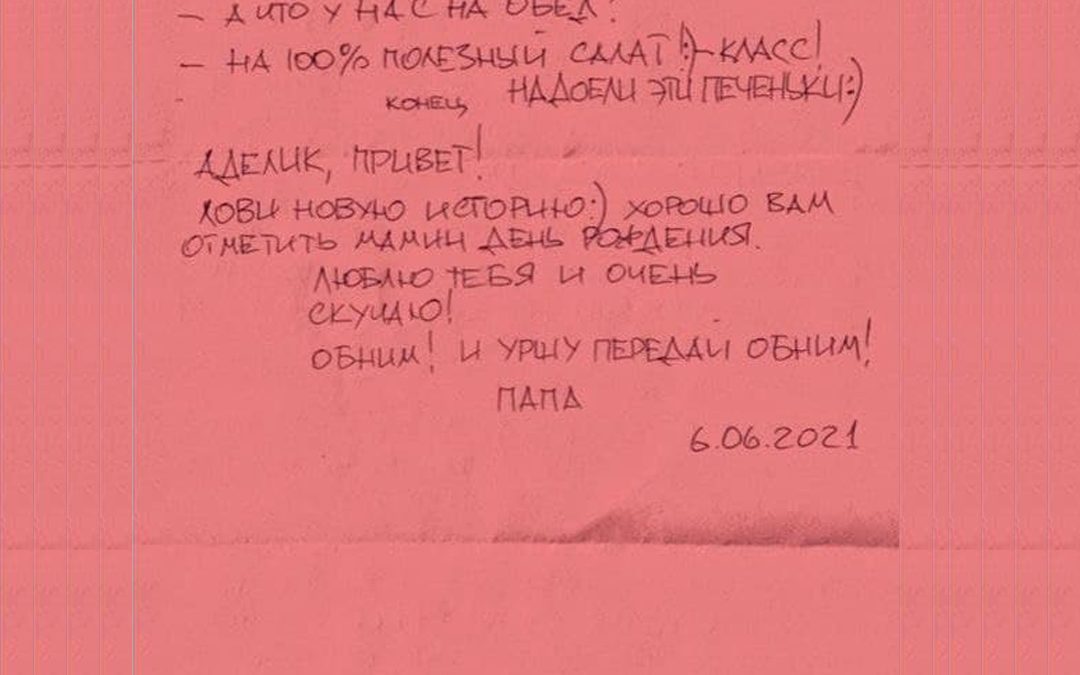 – А ЧТО У НАС НА ОБЕД?
– НА 100% ПОЛЕЗНЫЙ САЛАТ!:) – КЛАСС!
НАДОЕЛИ ЭТИ ПЕЧЕНЬКИ:)
КОНЕЦ
АДЕЛИК, ПРИВЕТ!
ЛОВИ НОВУЮ ИСТОРИЮ:) ХОРОШО ВАМ
ОТМЕТИТЬ МАМИН ДЕНЬ РОЖДЕНИЯ.
ЛЮБЛЮ ТЕБЯ И ОЧЕНЬ
СКУЧАЮ!
ОБНИМ! И УРШУ ПЕРЕДАЙ ОБНИМ!
ПАПА
6.06.2021